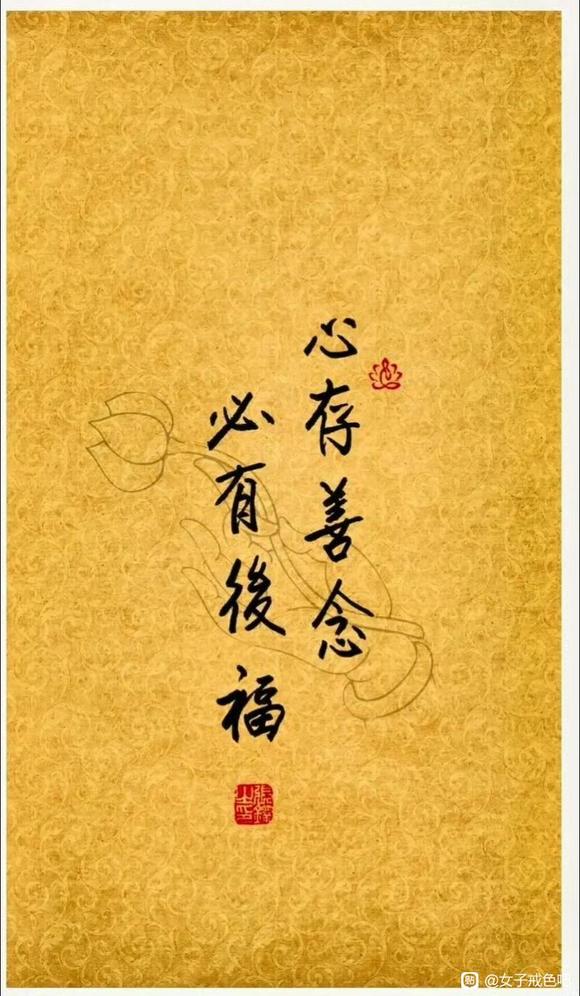 心存善念
必有後福
貼 @女子戒色吧